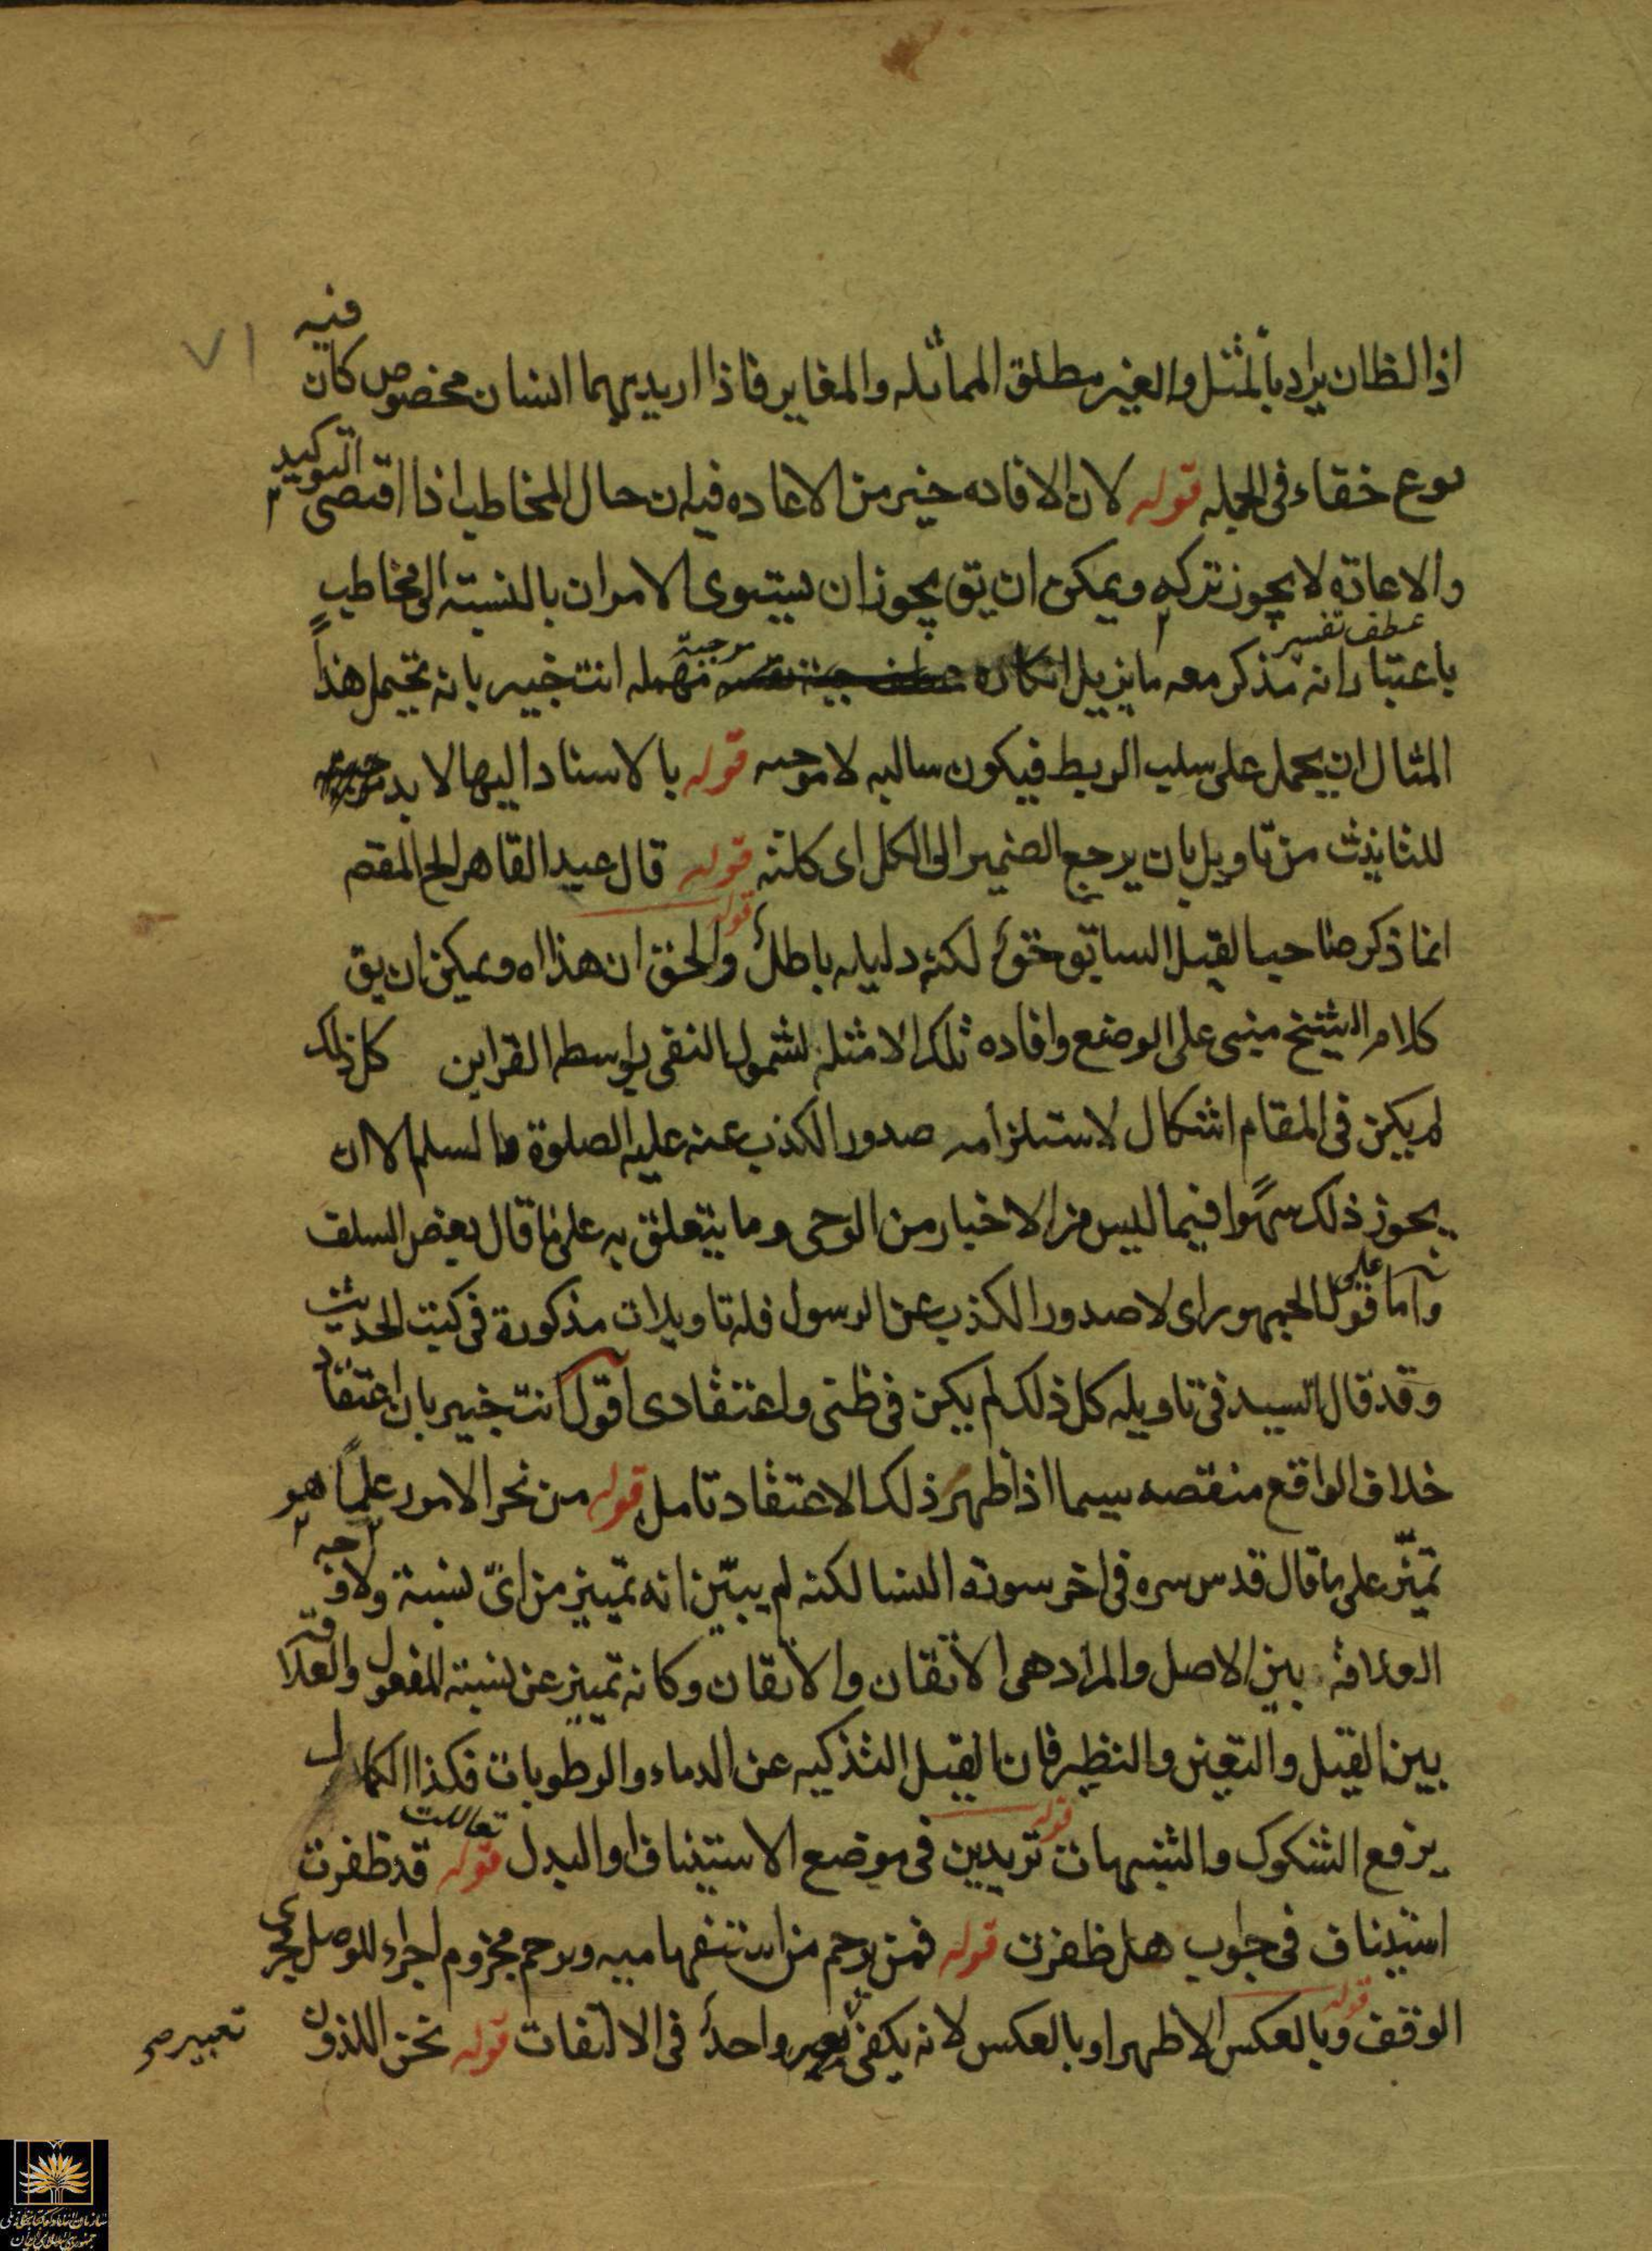 اذا لظان يراد بالمثل والغير مطلق المماثله والمغاير فاذا اريد بهما انسان مخصوص كان فيه
نوع خفاء فى الجمله قوله لان الافاده خير من الاعاده فيه ان حال المخاطب اذا اقتضى التوكيد
والاعادة لا يجوز تركه ويمكن ان يق يجوز ان يستوى الامران بالنسبة الى مخاطب
باعتبار انه مذكر معه ما يزيل انكاره عطف تفسير موجبة مهمله انت خبير بانه يحتمل هذا
المثال ان يحمل على سلب الربط فيكون سالبه لا موجبه قوله بالاسناد اليها لا بد
للتانيث من تاويل بان يرجع الضمير الى الكل اى كلته قوله قال عبد القاهر الخ المقصم
انما ذكر صاحب القيل السابق حق لكنه دليله باطل قوله والحق ان هذا اه ويمكن ان يق
كلام الشيخ مبنى على الوضع وافاده تلك الامثله لشمول النفى بواسطه القراين كل ذلك
لم يكن فى المقام اشكال لاستلزامه صدور الكذب عنه عليه الصلوة والسلم الا ان
يجوز ذلك سهوا فيما ليس من الاخبار من الوحى وما يتعلق به على ما قال بعض السلف
واما على قول الجمهور اى لا صدور الكذب عن الرسول فله تاويلات مذكورة فى كتب الحديث
وقد قال السيد فى تاويله كل ذلك لم يكن فى ظنى واعتقادى اقول انت خبير بان اعتقاد
خلاف الواقع منقصه سيما اذا ظهر ذلك الاعتقاد تامل قوله من نحر الامور علما هو
تميز على ما قال قدس سره فى اخر سورة النسا لكنه لم يبين انه تمييز من اى نسبة ولا وجه
العلاقه بين الاصل والمراد هى الاتقان والاتقان وكانه تمييز عن نسبة المفعول والعلاقة
بين القيل والتعين والنظير فان القيل التذكيه عن الدماء والرطوبات فكذا الكمال
يرفع الشكوك والشبهات قوله تريدين فى موضع الاستيناف او البدل قوله تعاللت قد ظفرت
استيناف فى جواب هل ظفرت قوله فمن يرحم من استفهاميه ويرحم مجزوم اجراء للوصل مجرى
الوقف قوله وبالعكس الاظهر او بالعكس لانه يكفى تعبير واحد فى الالتفات قوله نحن اللذون
تعبير صح